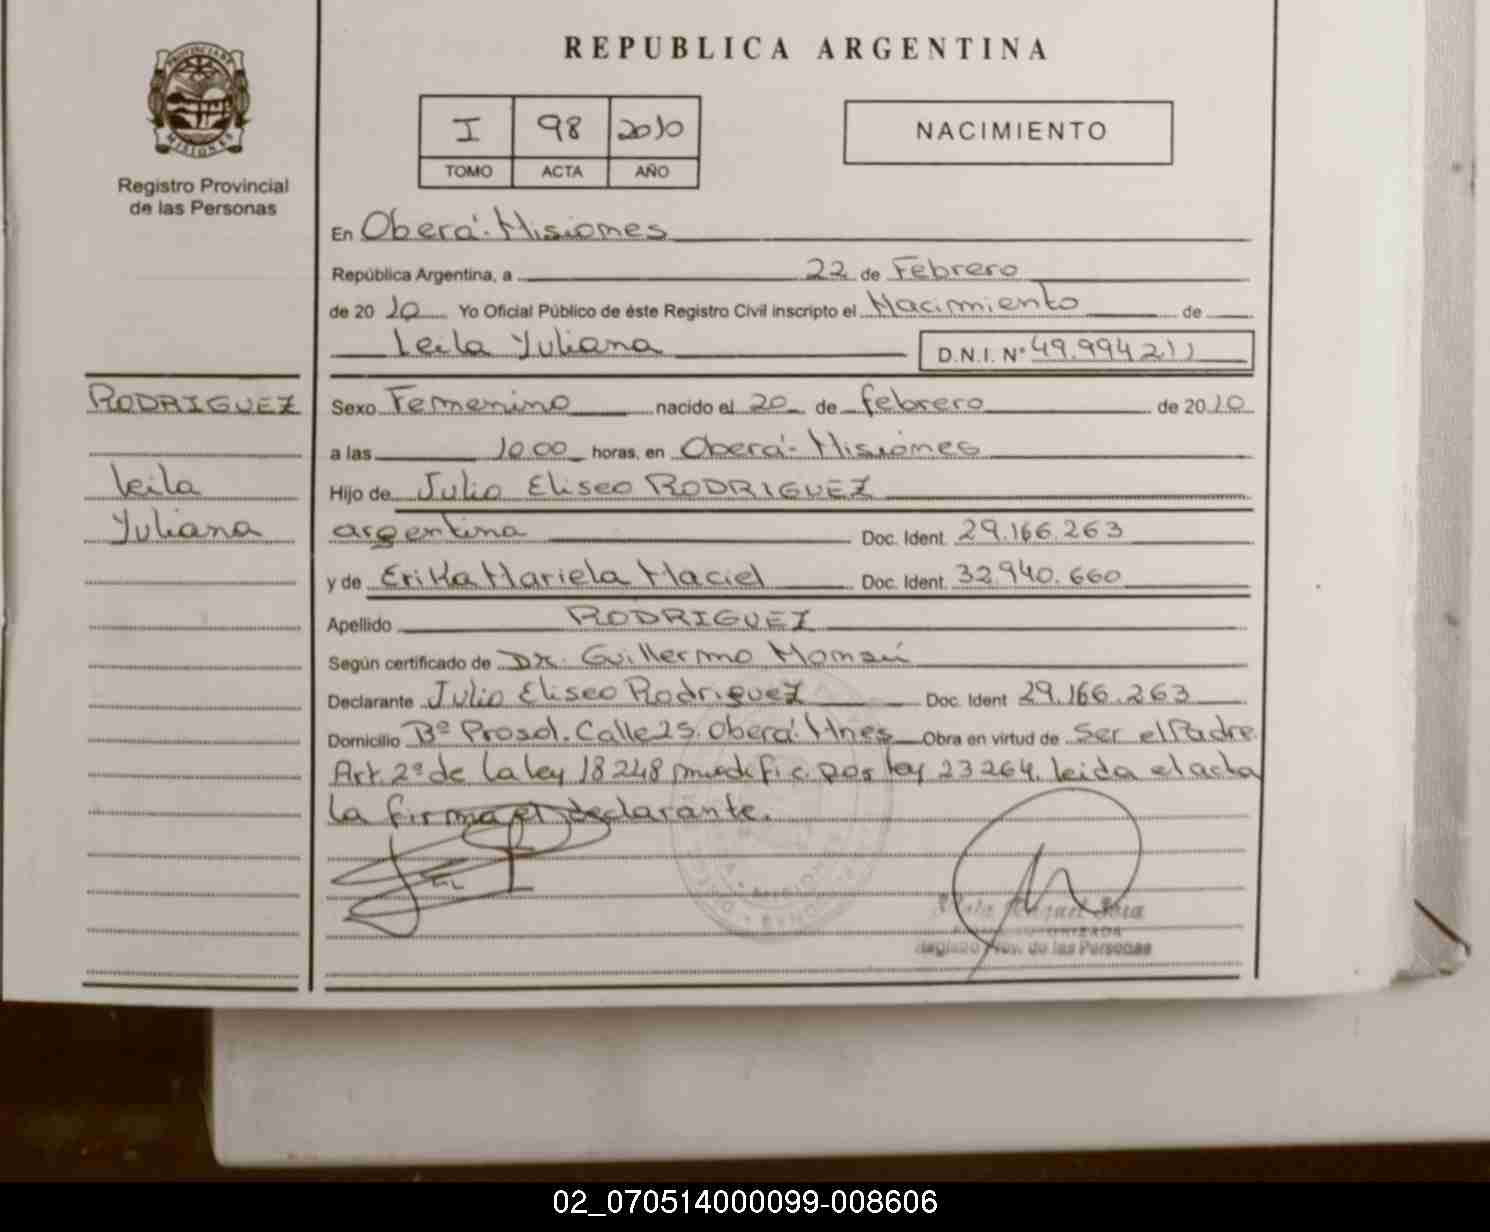 REPUBLICA ARGENTINA
PROVINCIA DE
MISIONES
Registro Provincial
de las Personas
I 98 2010
TOMO ACTA AÑO
NACIMIENTO
En Oberá - Misiones
República Argentina, a 22 de Febrero
de 2010 Yo Oficial Público de éste Registro Civil inscripto el Nacimiento de
Leila Yuliana D.N.I. Nº 49.994 211
RODRIGUEZ
Leila
Yuliana
Sexo Femenino nacido el 20 de febrero de 2010
a las 10 00 horas, en Oberá - Misiones
Hijo de Julio Eliseo RODRIGUEZ
argentina Doc. Ident. 29.166.263
y de Erika Mariela Maciel Doc. Ident. 32.940.660
Apellido RODRIGUEZ
Según certificado de Dr. Guillermo
Declarante Julio Eliseo Rodriguez Doc. Ident 29.166.263
Domicilio Bº Prosol. Calle 25. Oberá. Mnes Obra en virtud de Ser el Padre
Art. 2º de la ley 18 248 modific. por ley 23 264. leida el acta
la firma el declarante.
Registro Prov. de las Personas
02_070514000099-008606